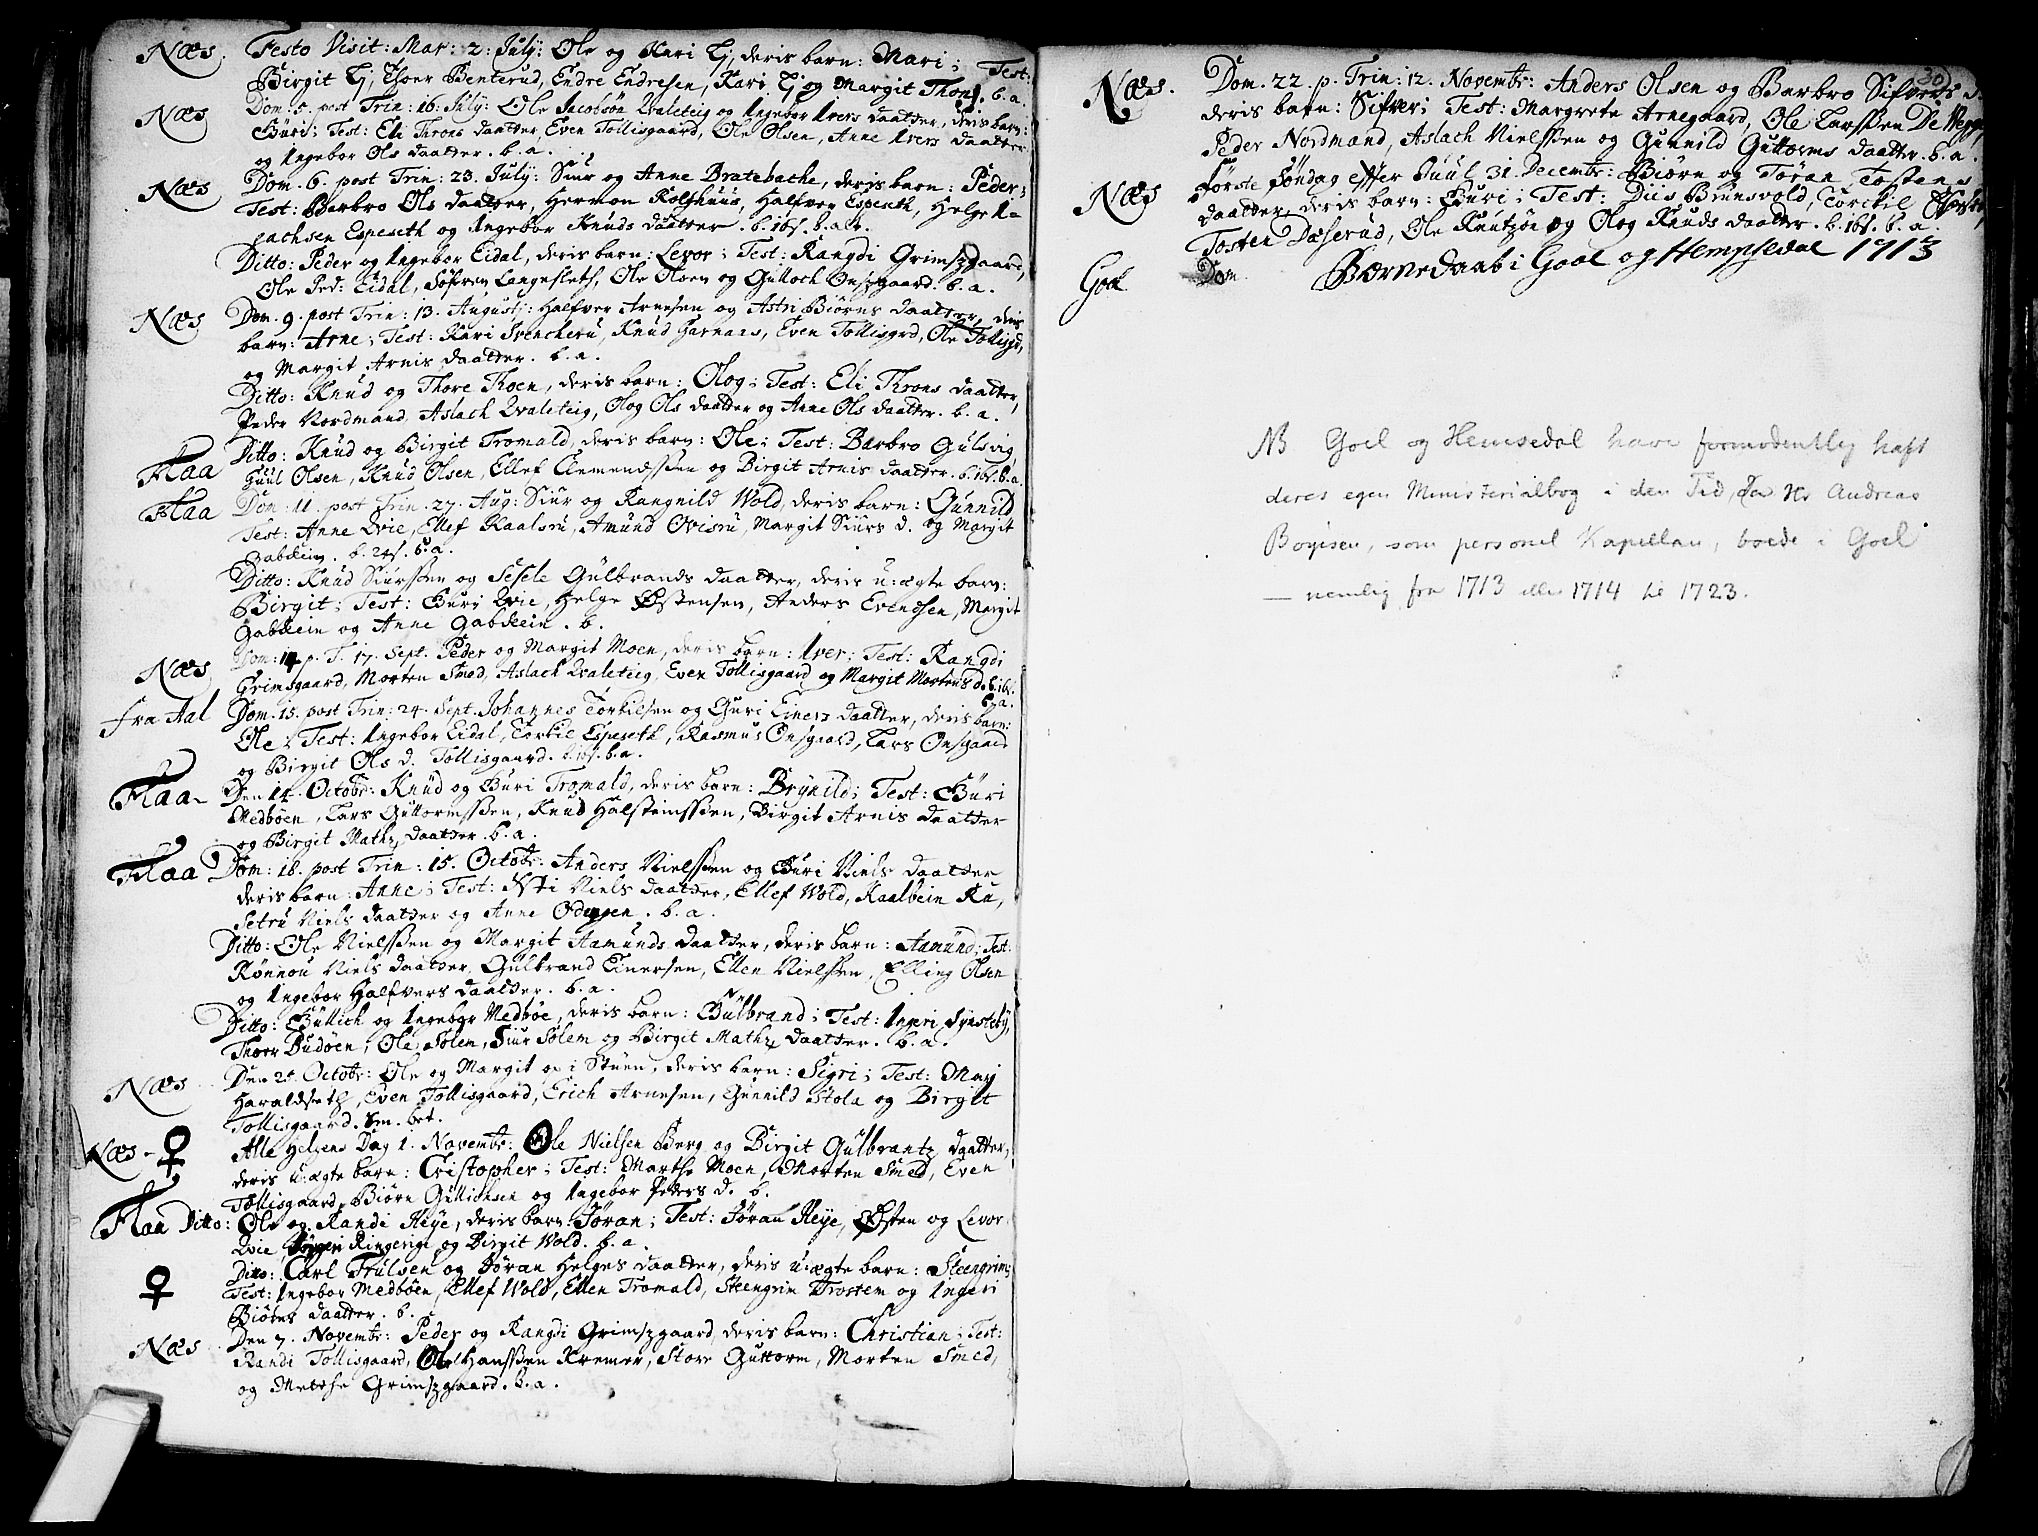 Næs. Festo Visit: Mar: 2: July: Ole og Kari Lj, deris barn: Mari; Test:
Birgit Lj, Thoer Benterud, Endre Endresen, Kari Lj og Margit Thons. b. a.
Næs Dom. 5. post Trin: 16. July: Ole Jacobsøn Qvaleteig og Ingebor Ivers daatter, deris barn:
Guri; Test: Eli Throns daatter, Even Tollisgaard, Ole Olsen, Anne Ivers daatter
og Ingebor Ols daatter. b. a.
Næs Dom. 6. post Trin: 23. July: Siur og Anne Bratebache, deris barn: Peder;
Test: Barbro Ols daatter, Hermon Rolfhuus, Halfver Espeseth, Helge
sachsen Espeseth og Ingebor Knuds daatter. b. 16s. b. a.
Ditto: Peder og Ingebor Eidal, deris barn: Levor; Test: Rangdi Grimszgaard,
Ole Ped: Eidal, Søfren Lengesleth, Ole Olsen og Gulloch Onszgaard. b. a.
Næs Dom. 9. post Trin: 13. Augusti: Halfver Arnesen og Astri Biørns daatter, deris
barn: Arne; Test: Kari Svencheru, Knud Garnaas, Even Tollisgrd, Ole Tollisgd,
og Margit Arnis daatter. b. a.
Ditto: Knud og Thore Thoen, deris barn: Olog; Test: Eli Throns daatter,
Peder Nordmand, Aslach Qvaleteig, Olog Ols daatter og Anne Ols daatter. b. a.
Flaa Ditto: Knud og Birgit Tromald, deris barn: Ole; Test: Barbro Gulsvig,
Guul Olsen, Knud Olsen, Ellef Clemendssen og Birgit Arnis daatter. b. 16s. b. a.
Flaa Dom: 11. post Trin. 27. Aug: Siur og Rangnild Wold, deris barn: Gunnild
Test: Anne Qvie, Ellef Kaalsru, Amund Ovisru, Margit Siurs d. og Margit
Gabklein. b. 24s. b. a.
Ditto: Knud Siurssen og Sesele Gulbrands daatter, deris u:ægte barn:
Birgit; Test: Guri Qvie, Helge Østensen, Anders Evensen, Margit
Gabklein og Anne Gabklein. b.
Næs Dom: 14 p. T. 17. Sept. Peder og Margit Moen, deris barn: Iver; Test: Rangdi
Grimsgaard, Morten Smed, Aslach Qvaleteig, Even Tollisgaard og Margit Mortens d. b. 16s.
b. a.
fra Aal Dom. 15. post Trin: 24. Sept. Johannes Torkilsen og Guri Einers daatter, deris barn:
Ole; Test: Ingebor Eidal, Torkil Espeseth, Rasmus Onsgaard, Lars Onsgaard
og Birgit Ols d. Tollisgaard. b. 16s. b. a.
Flaa Den 14. Octobr: Knud og Guri Tromald, deris barn: Brynild; Test: Guri
Medbøen, Lars Guttormssen, Knud Halsteinssen, Birgit Arnis daatter
og Birgit Mathz daatter. b. a.
Flaa Dom: 18. post Trin: 15. Octobr: Anders Nielssen og Guri Niels daatter
deris barn: Anne; Test: Niels daatter, Ellef Wold, Kaalbein Ru,
Setru Niels daatter og Anne Odeggen. b. a.
Ditto: Ole Nielssen og Margit Aamunds daatter, deris barn: Aamund; Test:
Rønnou Niels daatter, Gulbrand Einersen, Ellen Nielssen, Elling Olsen
og Ingebor Halfvers daatter. b. a.
Ditto: Gullich og Ingebor Medbøe, deris barn: Gulbrand; Test: Ingeri Synsteby,
Thoer Budøen, Ole Solem, Siur Solem og Birgit Mathz daatter. b. a.
Næs Den 2 Octobr: Ole og Margit op i Stuen, deris barn: Sigri; Test: Marj
Haraldseth, Even Tollisgaard, Erich Arnesen, Gunnild Stola og Birgit
Tollisgaard. bet.
Næs - ♀ Alle Helgens Dag 1. Novembr: Ole Nielsen Berg og Birgit Gulbrantz daatter,
deris u:ægte barn: Cristopher; Test: Marthe Moen, Morten Smed, Even
Tollisgaard, Biørn Gullichsen og Ingebor Peders d. b.
Flaa Ditto: Ole og Randi Heye, deris barn: Jøran; Test: Jøran Heye, Østen og Levor
Qvie, Ringerige og Birgit Wold. b. a.
♀ Ditto: Carl Trulsen og Jøran Helges daatter, deris u:ægte barn: Steengrim;
Test: Ingebor Medbøen, Ellef Wold, Ellen Tromald, Steengrim Trostem og Ingeri
Biørns daatter. b.
Næs Den 7. Novembr: Peder og Rangdi Grimszgaard, deris barn: Christian; Test:
Randi Tollisgaard, Ole Hanssen Kremer, Store Guttorm, Morten Smed,
og Mette Grimszgaard. b. a.
30
Næs. Dom. 22. p. Trin: 12. Novembr: Anders Olsen og Barbro Sifverds
deris barn: Sifver; Test: Margrete Arnegaard, Ole Larssen De
Peder Nordmand, Aslach Nielssen og Gunnild Guttorms daatter. b. a.
Næs Første Søndag efter Juul 31. Decembr: Biørn og Tøran Tostens
daatter, deris barn: Guri; Test: Diis Brunsvold, Torckil
Tosten Dæserud, Ole Knutzøn og Olog Knuds daatter. b. 16s. b. a.
Goel Dom. Børnedaab i Goel og Hempsedal 1713
NB Goel og Hemsedal have formodentlig haft
deres egen Ministerialbog i den Tid, da Hr Andreas
Boyesen, som personel Kapellan, boede i Goel
— nemlig fra 1713 eller 1714 til 1723.